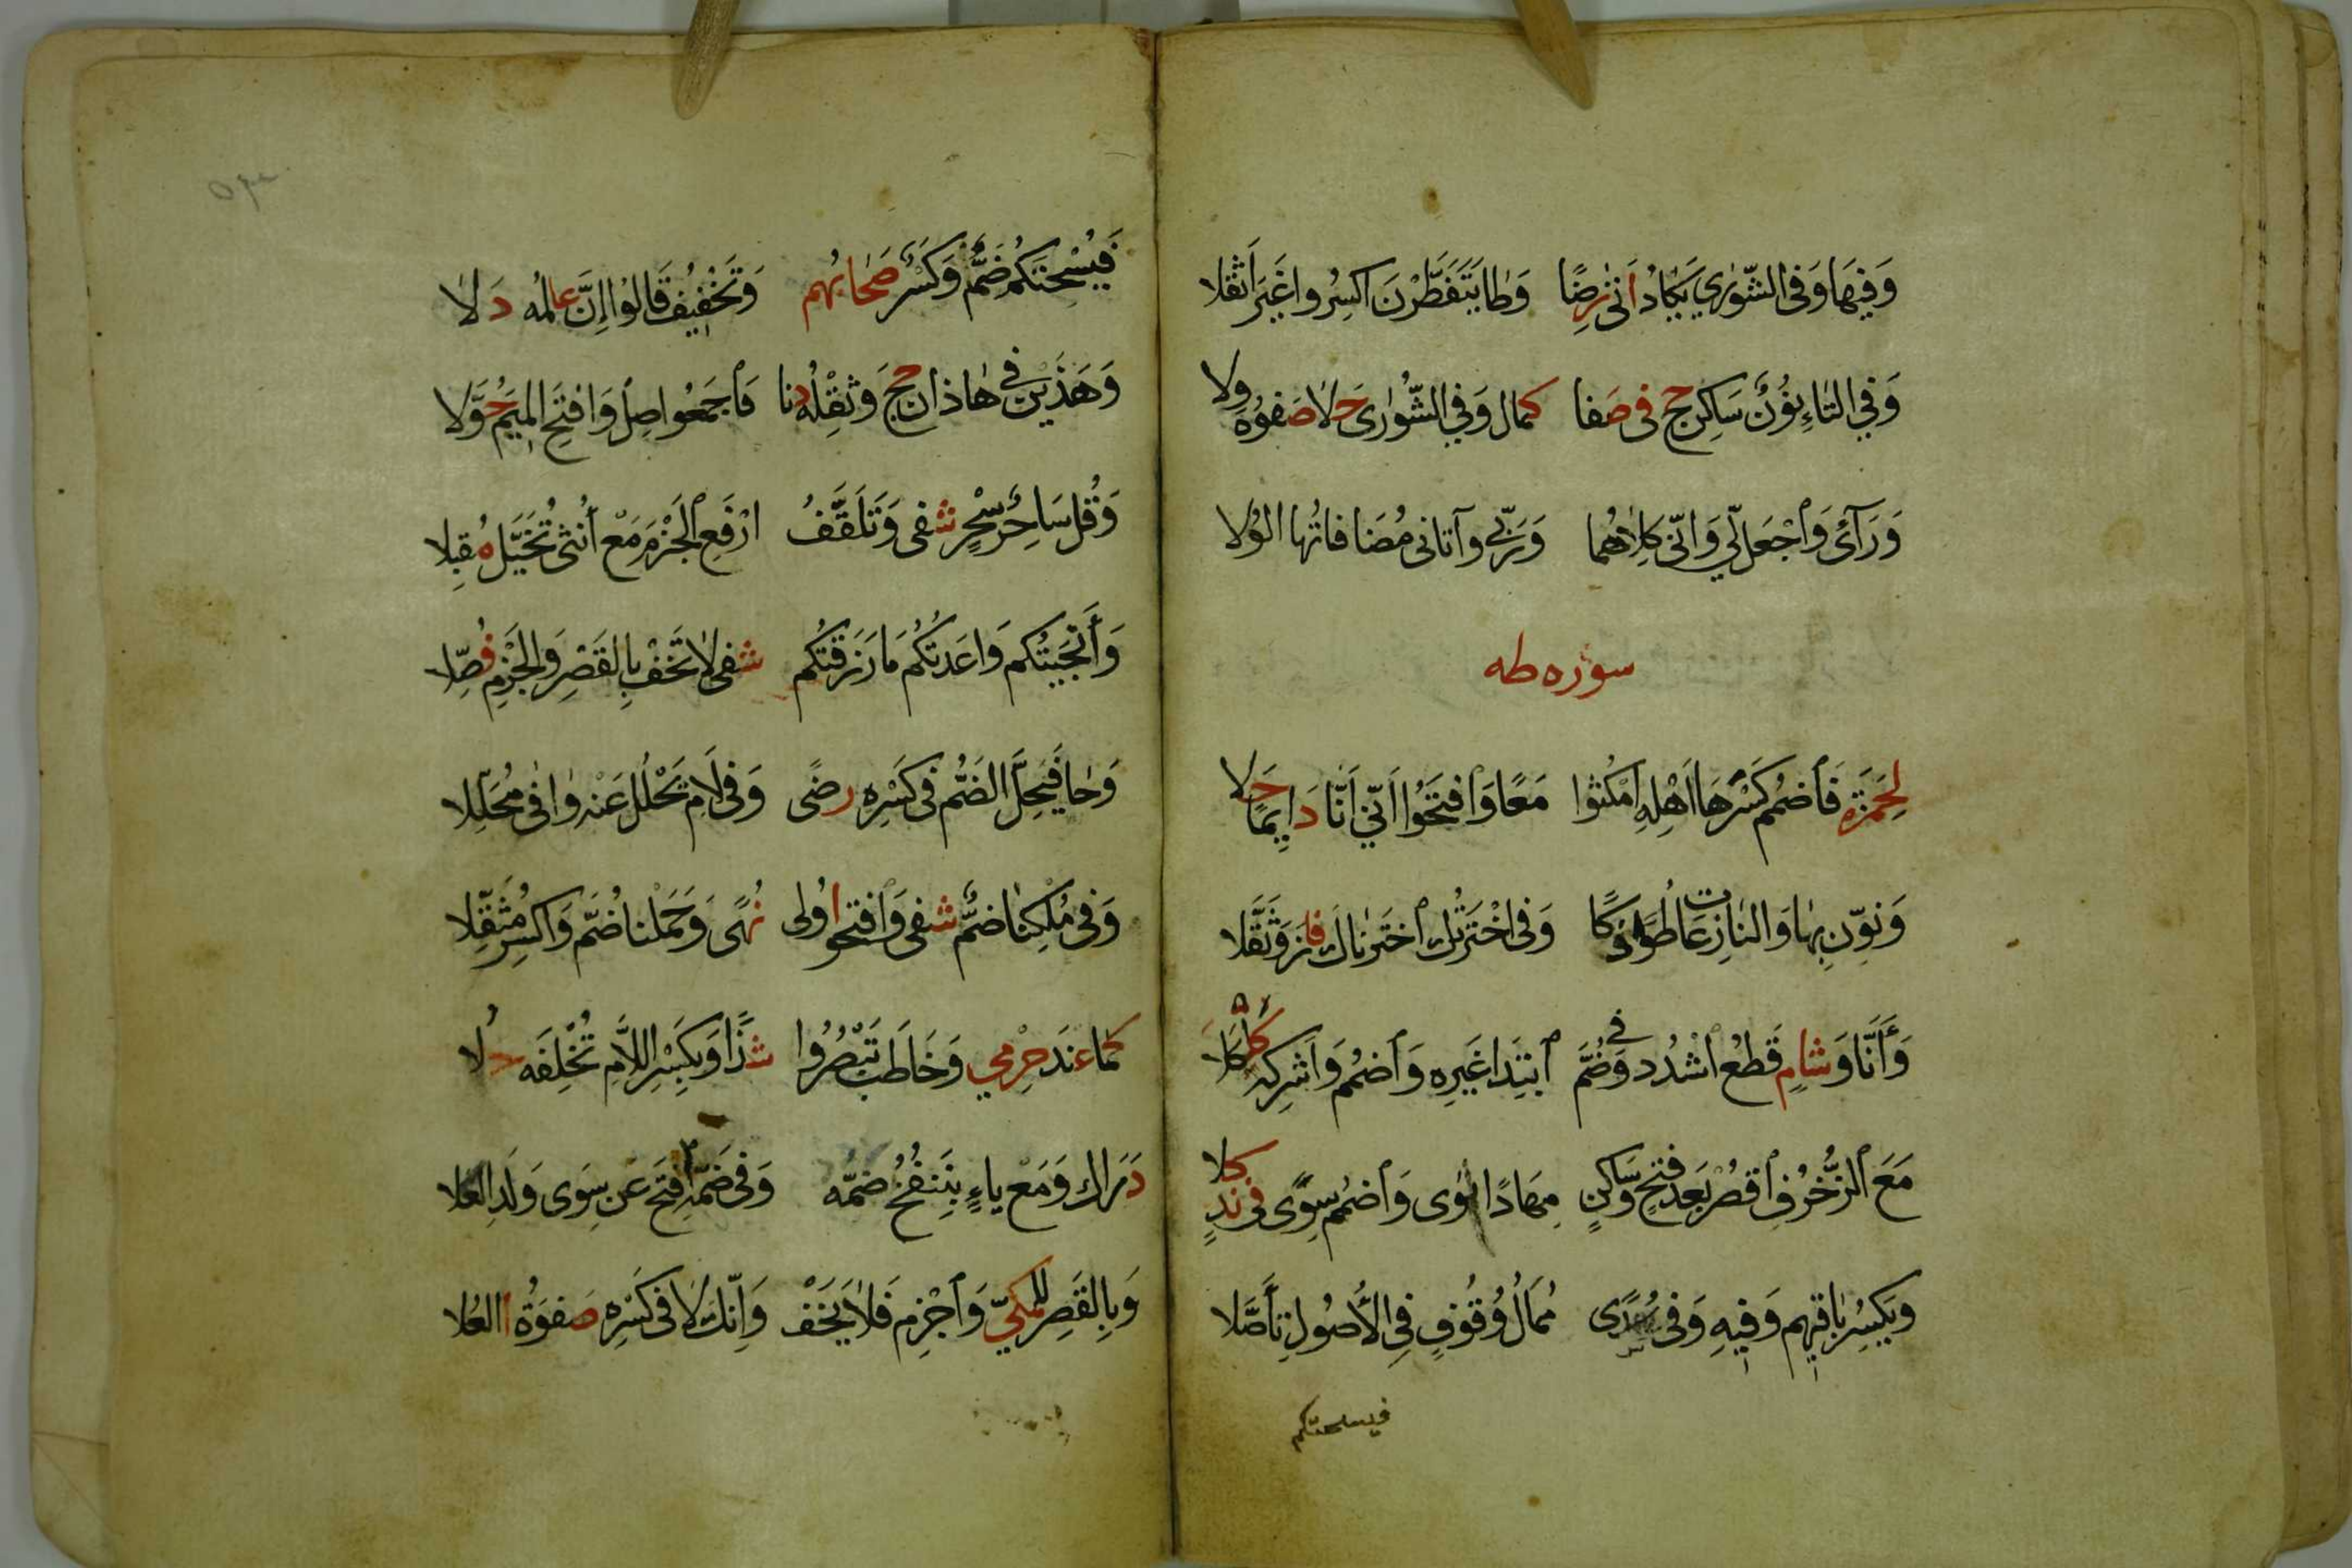 وَفِيهَا وَفِي الشُّورٰي يَكَادُ أَتٰى رِضًا وَطَا يَتَفَطَّرْنَ اكسِرُوا غَيْرَ أَثْقَلا
وَفِي التَّاءِ نُونٌ سَاكِنٌ حَجَّ فِي صَفا كمال وَفِي الشُّورٰى حَلا صَفوُهُ وِلا
وَرَآئَ وَٱجْعَل لّي وَإنّي كِلَاهُمَا وَرَبّي وآتاني مُضَافاتُها الوُلا
سوره طه
لِحَمزَةَ فَٱضمُم كَسْرَ هَا اَهْلِهِ امْكُثُوا مَعًا وَٱفتَحُوا اَنّي أَنَا دَايِمًا حَلا
وَنَوِّن بِهَا وَالنّازِعَات طُوًى ذَكَا وَفي اخْتَرْتُكَ ٱختَرنَاكَ فَازَ وَثَقَّلا
وَأَنَّا وَشامٍ قَطعُ ٱشْدُد وَضُمَّ في ٱبتِدَا غَيرِه وَٱضمُم وَأشرِكهُ كَلكَلا
مَعَ ٱلزُّخرُفِ ٱقصُر بَعدَ فَتحٍ وَسَاكِنٍ مِهَادًا ثوٰى وَٱضمُم سِوًى في نَدٍ كلا
وَيَكسِرُ بَاقيهِم وَفِيهِ وَفي سُدًى مُمَالُ وُقُوفٍ فِي الأُصُولِ تَأَصَّلا
فيسحتكم
فَيُسْحِتَكُم ضَمٌّ وَكَسرٌ صَحَابُهم وَتَخْفِيفُ قَالُوا إنَّ عالمُه دَلا
وَهَذَيْنِ في هَاذان حَجَّ وَثِقْلُهُ دنا فَٱجمَعُوا صِل وَافتَحِ المِيمَ حُوَّلا
وَقُل سَاحِرٌ سِحْرٍ شفى وَتَلَقَّفُ ارْفَعِ ٱلجَزْمَ مَعْ أُنثى تُخَيَّل مُقبِلا
وَأَنْجَيتُكم وَاعَدتُكُم مَا رَزَقتُكُم شفى لا تَخَفْ بِالقَصْرِ وَالجَزمِ فُصِّلا
وَحَا فَيَحِلَّ الضَمُّ في كَسْرِه رضًى وَفي لَامِ تَحْلُل عَنْه وَافٰى مُحَلِّلا
وَفي مُلْكِنَا ضَمٌّ شفى وَٱفتحوا اُولى نُهًى وَحَمَلْنا ضُمَّ وَاكسِر مُثَقِّلا
كما عندَ حِرْمي وَخَاطَبَ تَبْصُرُوا شَذًا وَبِكَسْرِ اللَّامِ تُخْلِفَه حَلا
دَرَاكِ وَمَعْ ياءٍ بِنَنفُخُ ضَمُّه وَفي ضَمِّهِ افتَح عَن سِوَى وَلَدِ العَلا
وَبِالقَصرِ لِلمَكيّ وَٱجْزِم فَلاَ يَخَفْ وَإنَّكَ لا في كَسْرِه صَفوَةُ العُلا